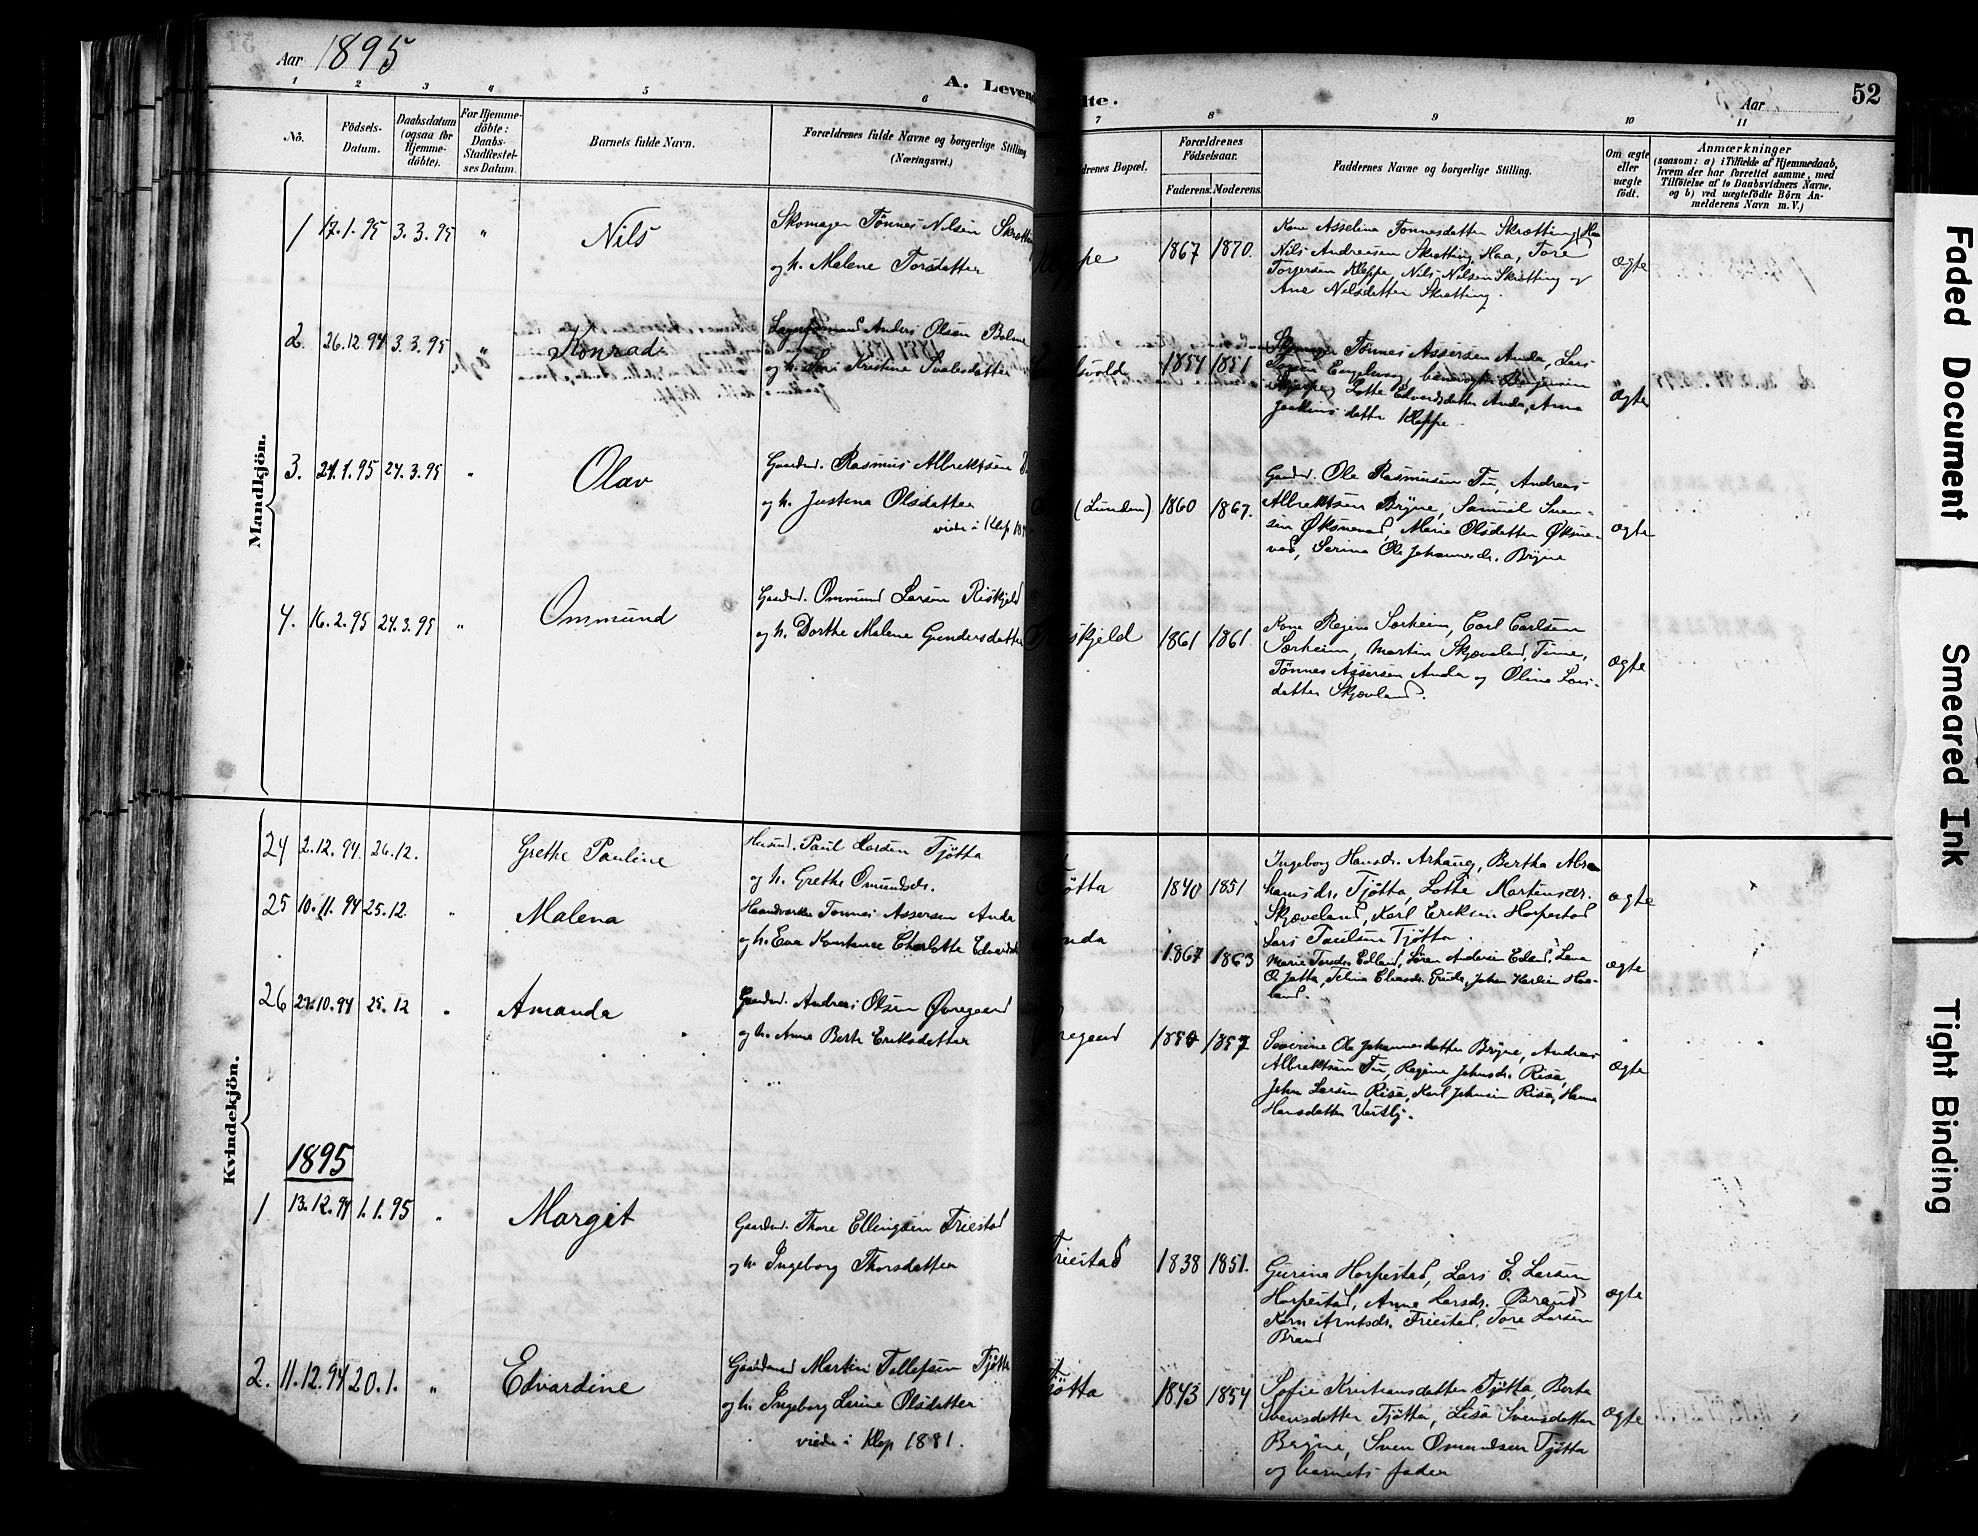 Aar 1895
A. Levende
dte.
Aar
52
1 2 3 4 5 6 7 8 9 10 11
No.
Födsels-
Datum.
Daabsdatum
(ogsaa for
Hjemme-
döbte).
For Hjemme-
döbte:
Daabs-
Stadfæstel-
ses Datum.
Barnets fulde Navn.
Forældrenes fulde Navne og borgerlige Stilling
(Næringsvei.)
drenes Bopæl.
Forældrenes
Födselsaar.
Faderens. Moderens.
Faddernes Navne og borgerlige Stilling.
Om ægte
eller
uægte
födt.
Anmærkninger
(saasom: a) i Tilfælde af Hjemmedaab,
hvem der har forrettet samme, med
Tilföielse af to Daabsvidners Navne,
og b) ved uægtefödte Börn An-
melderens Navn m. V.)
Mandkjön.
1 17.1.95 3.3.95 " Nils
Skomager Tönnes Nilsen Skretting
og h. Malene Torsdatter
1867 1870.
Kone Asselina Tönnesdatter Skretting, Haa
Nils Andreasen Skretting Haa, Tore
Torgersen Kleppe, Nils Nilsen Skretting og
Ane Nilsdatter Skretting.
ægte
2. 26.12.94 3.3.95 " Konrad
Anders Olsen
Kristine
1854 1851
Tönnes Assersen Anda, Lars
Lotte Edvardsdatter Anda, Anna
datter Kleppe
ægte
3. 21.1.95 24.3.95 " Olav
Gaardm. Rasmus Albrektsen
og h. Justina Olsdatter
viede i Klep 18
(Lunden) 1860 1867.
Gaardm. Ole Rasmusen Tu, Andreas
Albrektsen Bryne, Samuel Sven-
sen Öksnevad, Marie Olsdatter Öksne-
vad, Serina Ole Johannesdr. Bryne
ægte
4. 16.2.95 24.3.95 " Ommund
Gaardm. Ommund Larsen Riskjeld
og h. Dorthe Malene Gundersdatter
skjeld 1861 1861
Kone Regine Sörheim, Carl Carlsen
Sörheim, Martin Skjæveland, Time,
Tönnes Assersen Anda og Oline Lars-
datter Skjæveland.
ægte
Kvindekjön.
24 2.12.94. 26.12. Grethe Pauline
Husmd. Paul Larsen Tjötta
og h. Grethe Omundsdr.
Tjötta 1840 1851
Ingeborg Hansdr. Arhaug, Bertha Abra-
hamsdr. Tjötta, Lotte
Skjæveland, Karl Eriksen Horpestad
Lars Paulsen Tjötta.
ægte
25 10.11.94 25.12. " Malena
Haandværker Tönnes Assersen Anda
og h. Eva Konstance Charlotte Edvardsd
nda 1867 1863
Marie Torsdr. Edland, Sören Andersen Edland, Lena
land.
ægte
26 27.10.94 25.12 " Amanda
Gaardmd. Andreas Olsen Övregaard
og h. Anne Berte Eriksdatter
regaard 1857
Severine Ole Johannesdatter Bryne, Andreas
Albrektsen Tu, Regine Johnsdr. Risa,
John Larsen Risa, Karl Johnsen Risa, Hanna
Hansdatter
ægte
1895
1 13.12.94 1.1.95 " Margit
Gaardmd. Thore Ellingsen Friestad
og h. Ingeborg Thorsdatter
Friestad 1838 1851.
Gurina Horpestad, Lars E. Larsen
Horpestad, Anne Larsdr. Braud
Karn Arntsdr. Friestad, Tore Larsen
Braud
ægte
2. 11.12.94 20.1. " Edvardine
Gaardmand Martin Tollefsen Tjötta
og h. Ingeborg Larine Olsdatter
viede i Klep 1881.
jötta 1843 1854
Sofie Kristiansdatter Tjötta, Berta
Svensdatter Tjötta, Lisa Svensdatter
Bryne, Sven Omundsen Tjötta
og barnets fader
ægte
Faded Document
Smeared Ink
Tight Binding